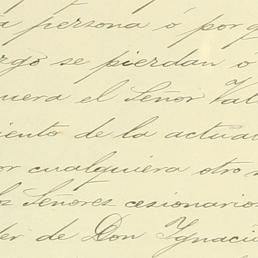 a persona ó por
rgo se pierdan ó
quiera el Señor Val
iento de la actua
or cualquiera otro
los Señores cesionario
der de Don Ignacio